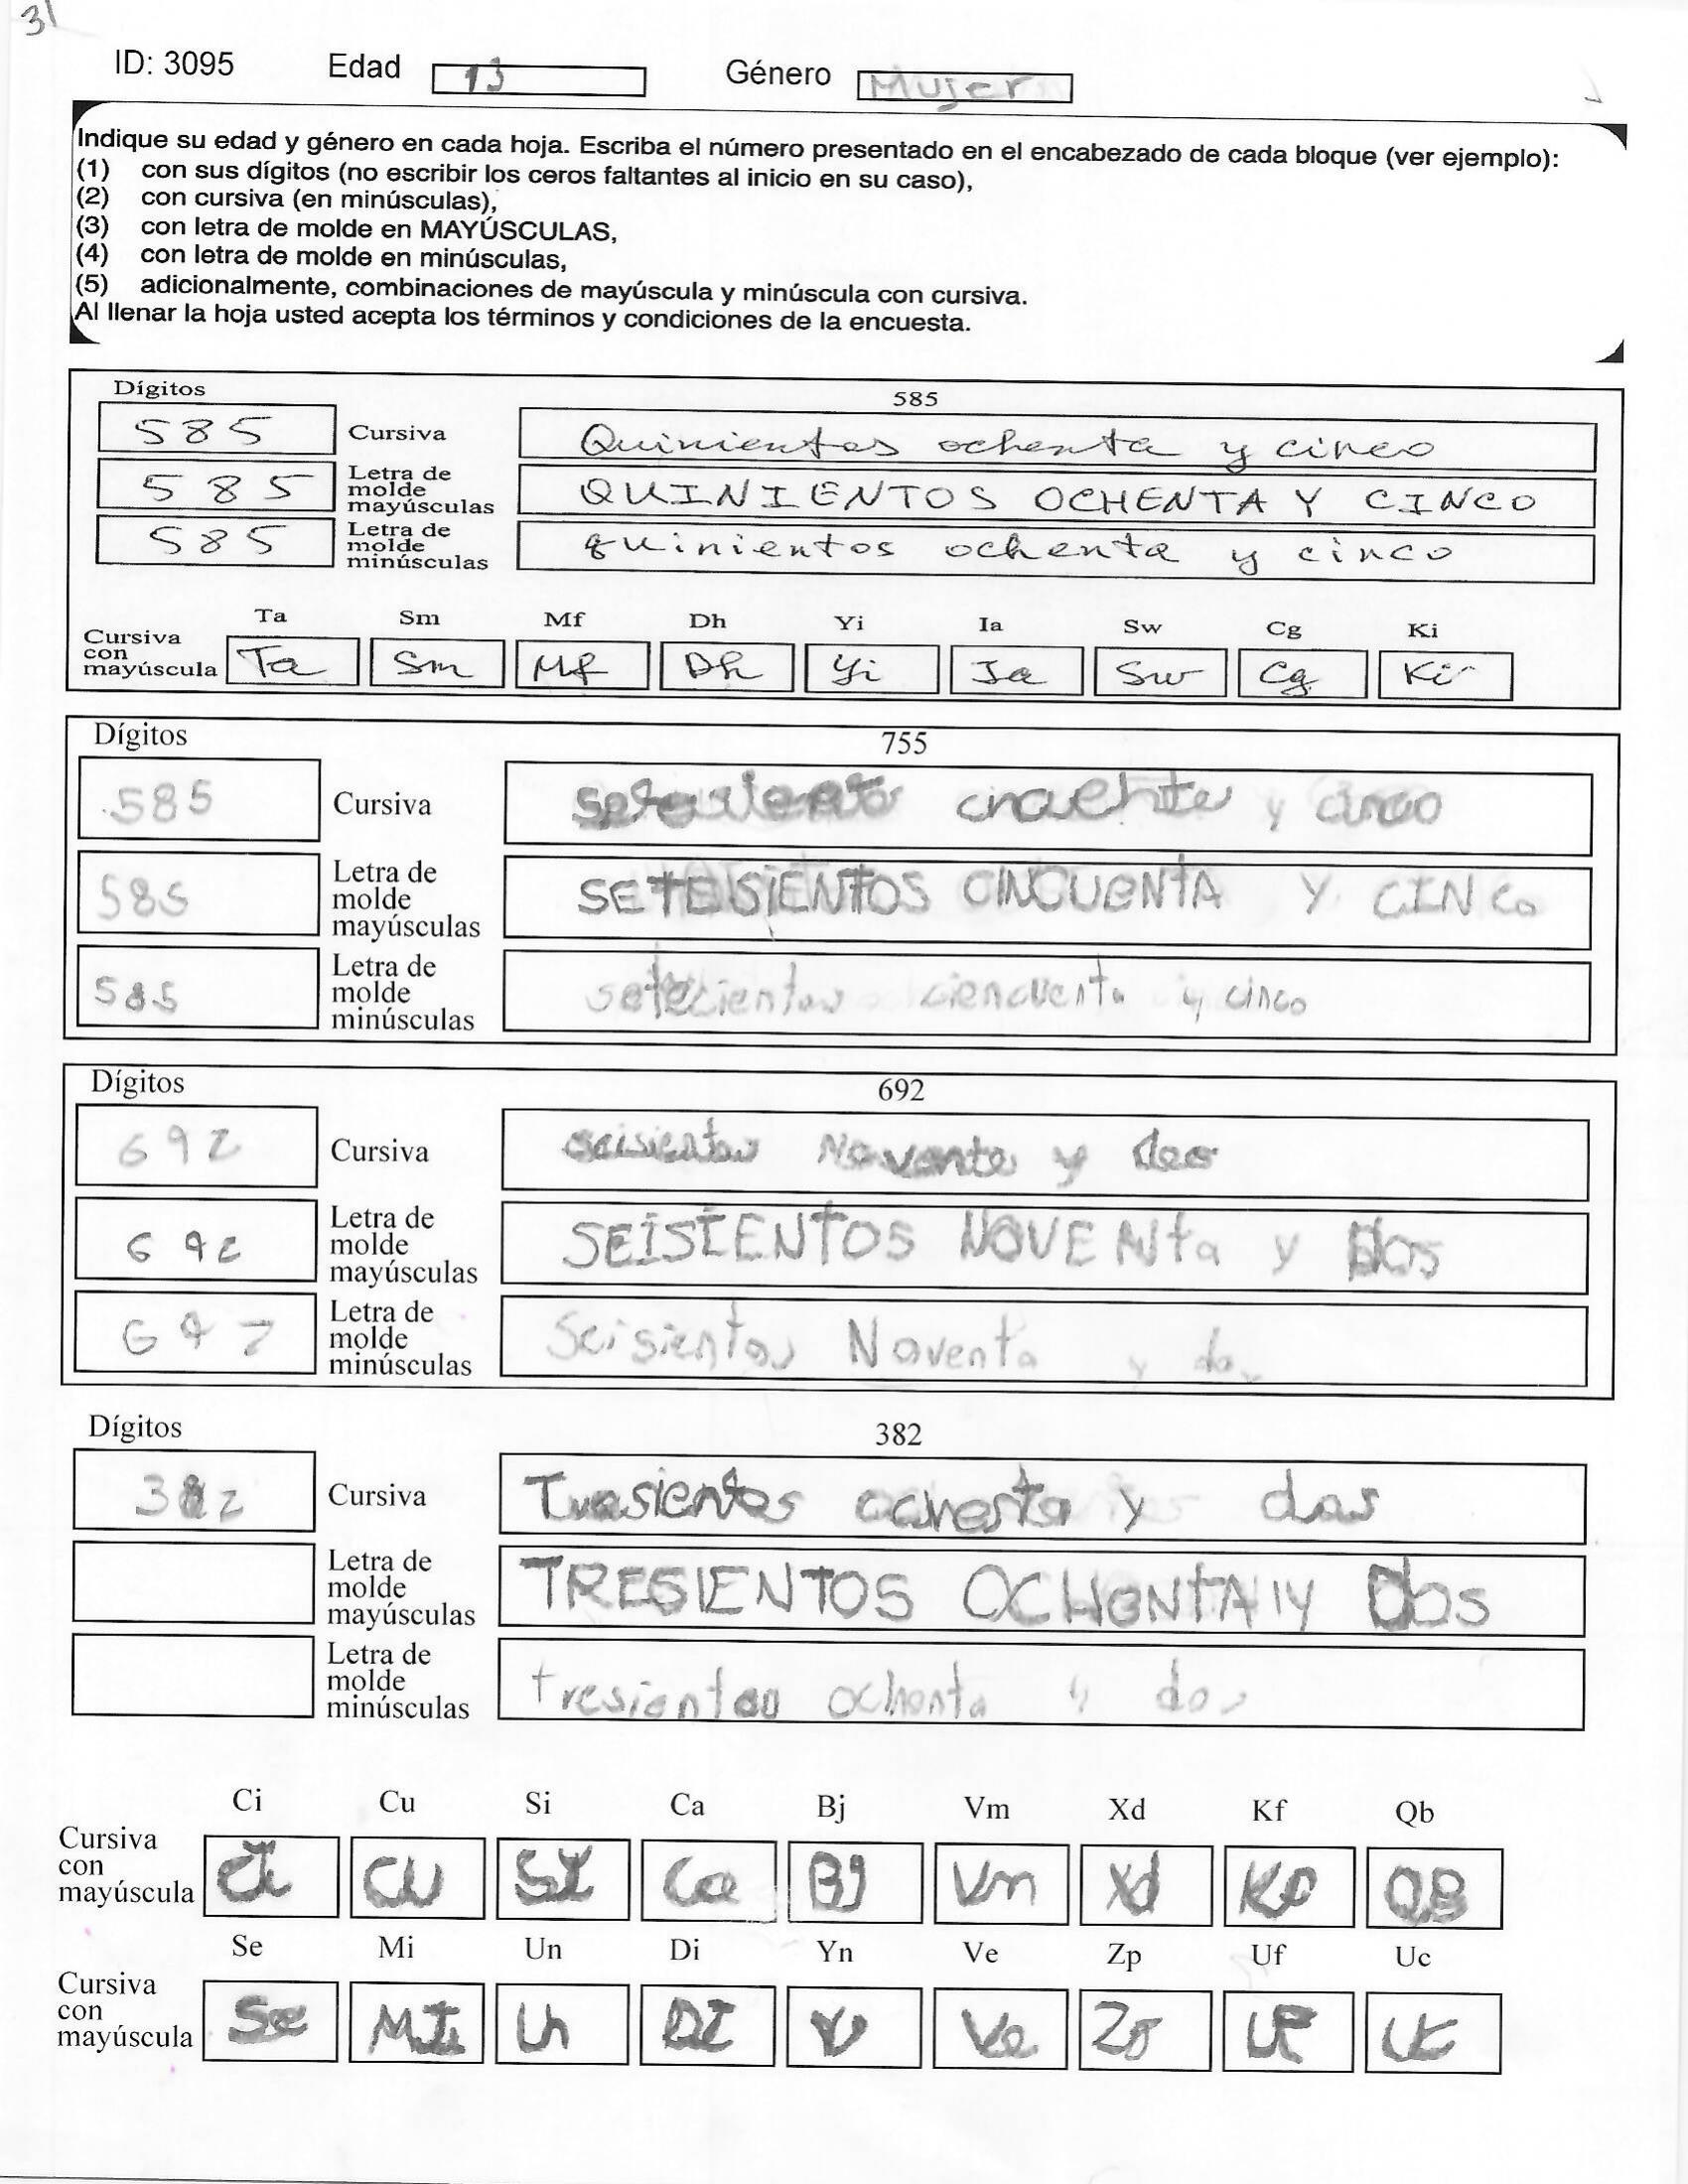 31
ID: 3095 Edad 13 Género Mujer
Indique su edad y género en cada hoja. Escriba el número presentado en el encabezado de cada bloque (ver ejemplo):
(1) con sus dígitos (no escribir los ceros faltantes al inicio en su caso),
(2) con cursiva (en minúsculas),
(3) con letra de molde en MAYÚSCULAS,
(4) con letra de molde en minúsculas,
(5) adicionalmente, combinaciones de mayúscula y minúscula con cursiva.
Al llenar la hoja usted acepta los términos y condiciones de la encuesta.
Dígitos 585
585 Cursiva Quinientos ochenta y cinco
585 Letra de molde mayúsculas QUINIENTOS OCHENTA Y CINCO
585 Letra de molde minúsculas quinientos ochenta y cinco
Ta Sm Mf Dh Yi Ia Sw Cg Ki
Cursiva con mayúscula Ta Sm Mf Dh Yi Ia Sw Cg Ki
Dígitos 755
585 Cursiva y cinco
585 Letra de molde mayúsculas SETESIENTOS CINCUENTA Y CINCO
585 Letra de molde minúsculas setecientos ciencuenta y cinco
Dígitos 692
692 Cursiva seisientos Noventa y dos
692 Letra de molde mayúsculas SEISIENTOS NOVENta y DOS
692 Letra de molde minúsculas Seisientos Noventa y dos
Dígitos 382
382 Cursiva Tresientos ochenta y dos
Letra de molde mayúsculas TRESIENTOS OCHENTA Y DOS
Letra de molde minúsculas tresientos ochenta y dos
Ci Cu Si Ca Bj Vm Xd Kf Qb
Cursiva con mayúscula Ci CU SI Ca BJ Vm Xd Kf QB
Se Mi Un Di Yn Ve Zp Uf Uc
Cursiva con mayúscula Se MI Un DI Ve Zp UF Uc